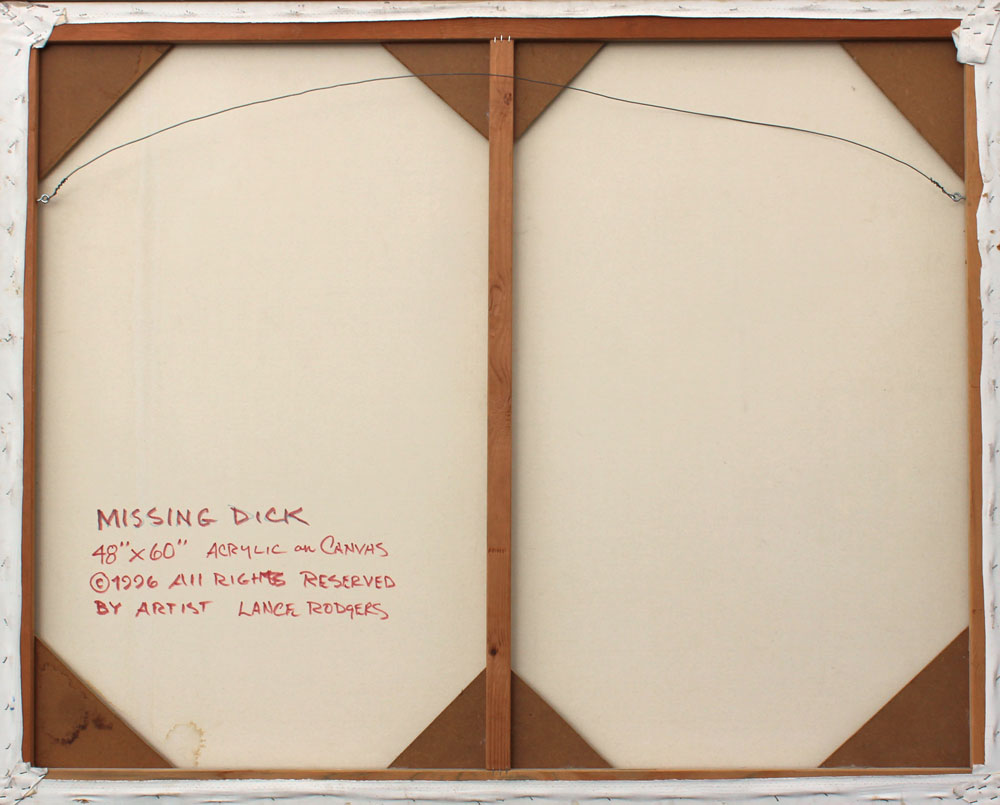 MISSING DICK
48" x 60" ACRYLIC on CANVAS
©1996 All RIGHTS RESERVED
BY ARTIST LANCE RODGERS